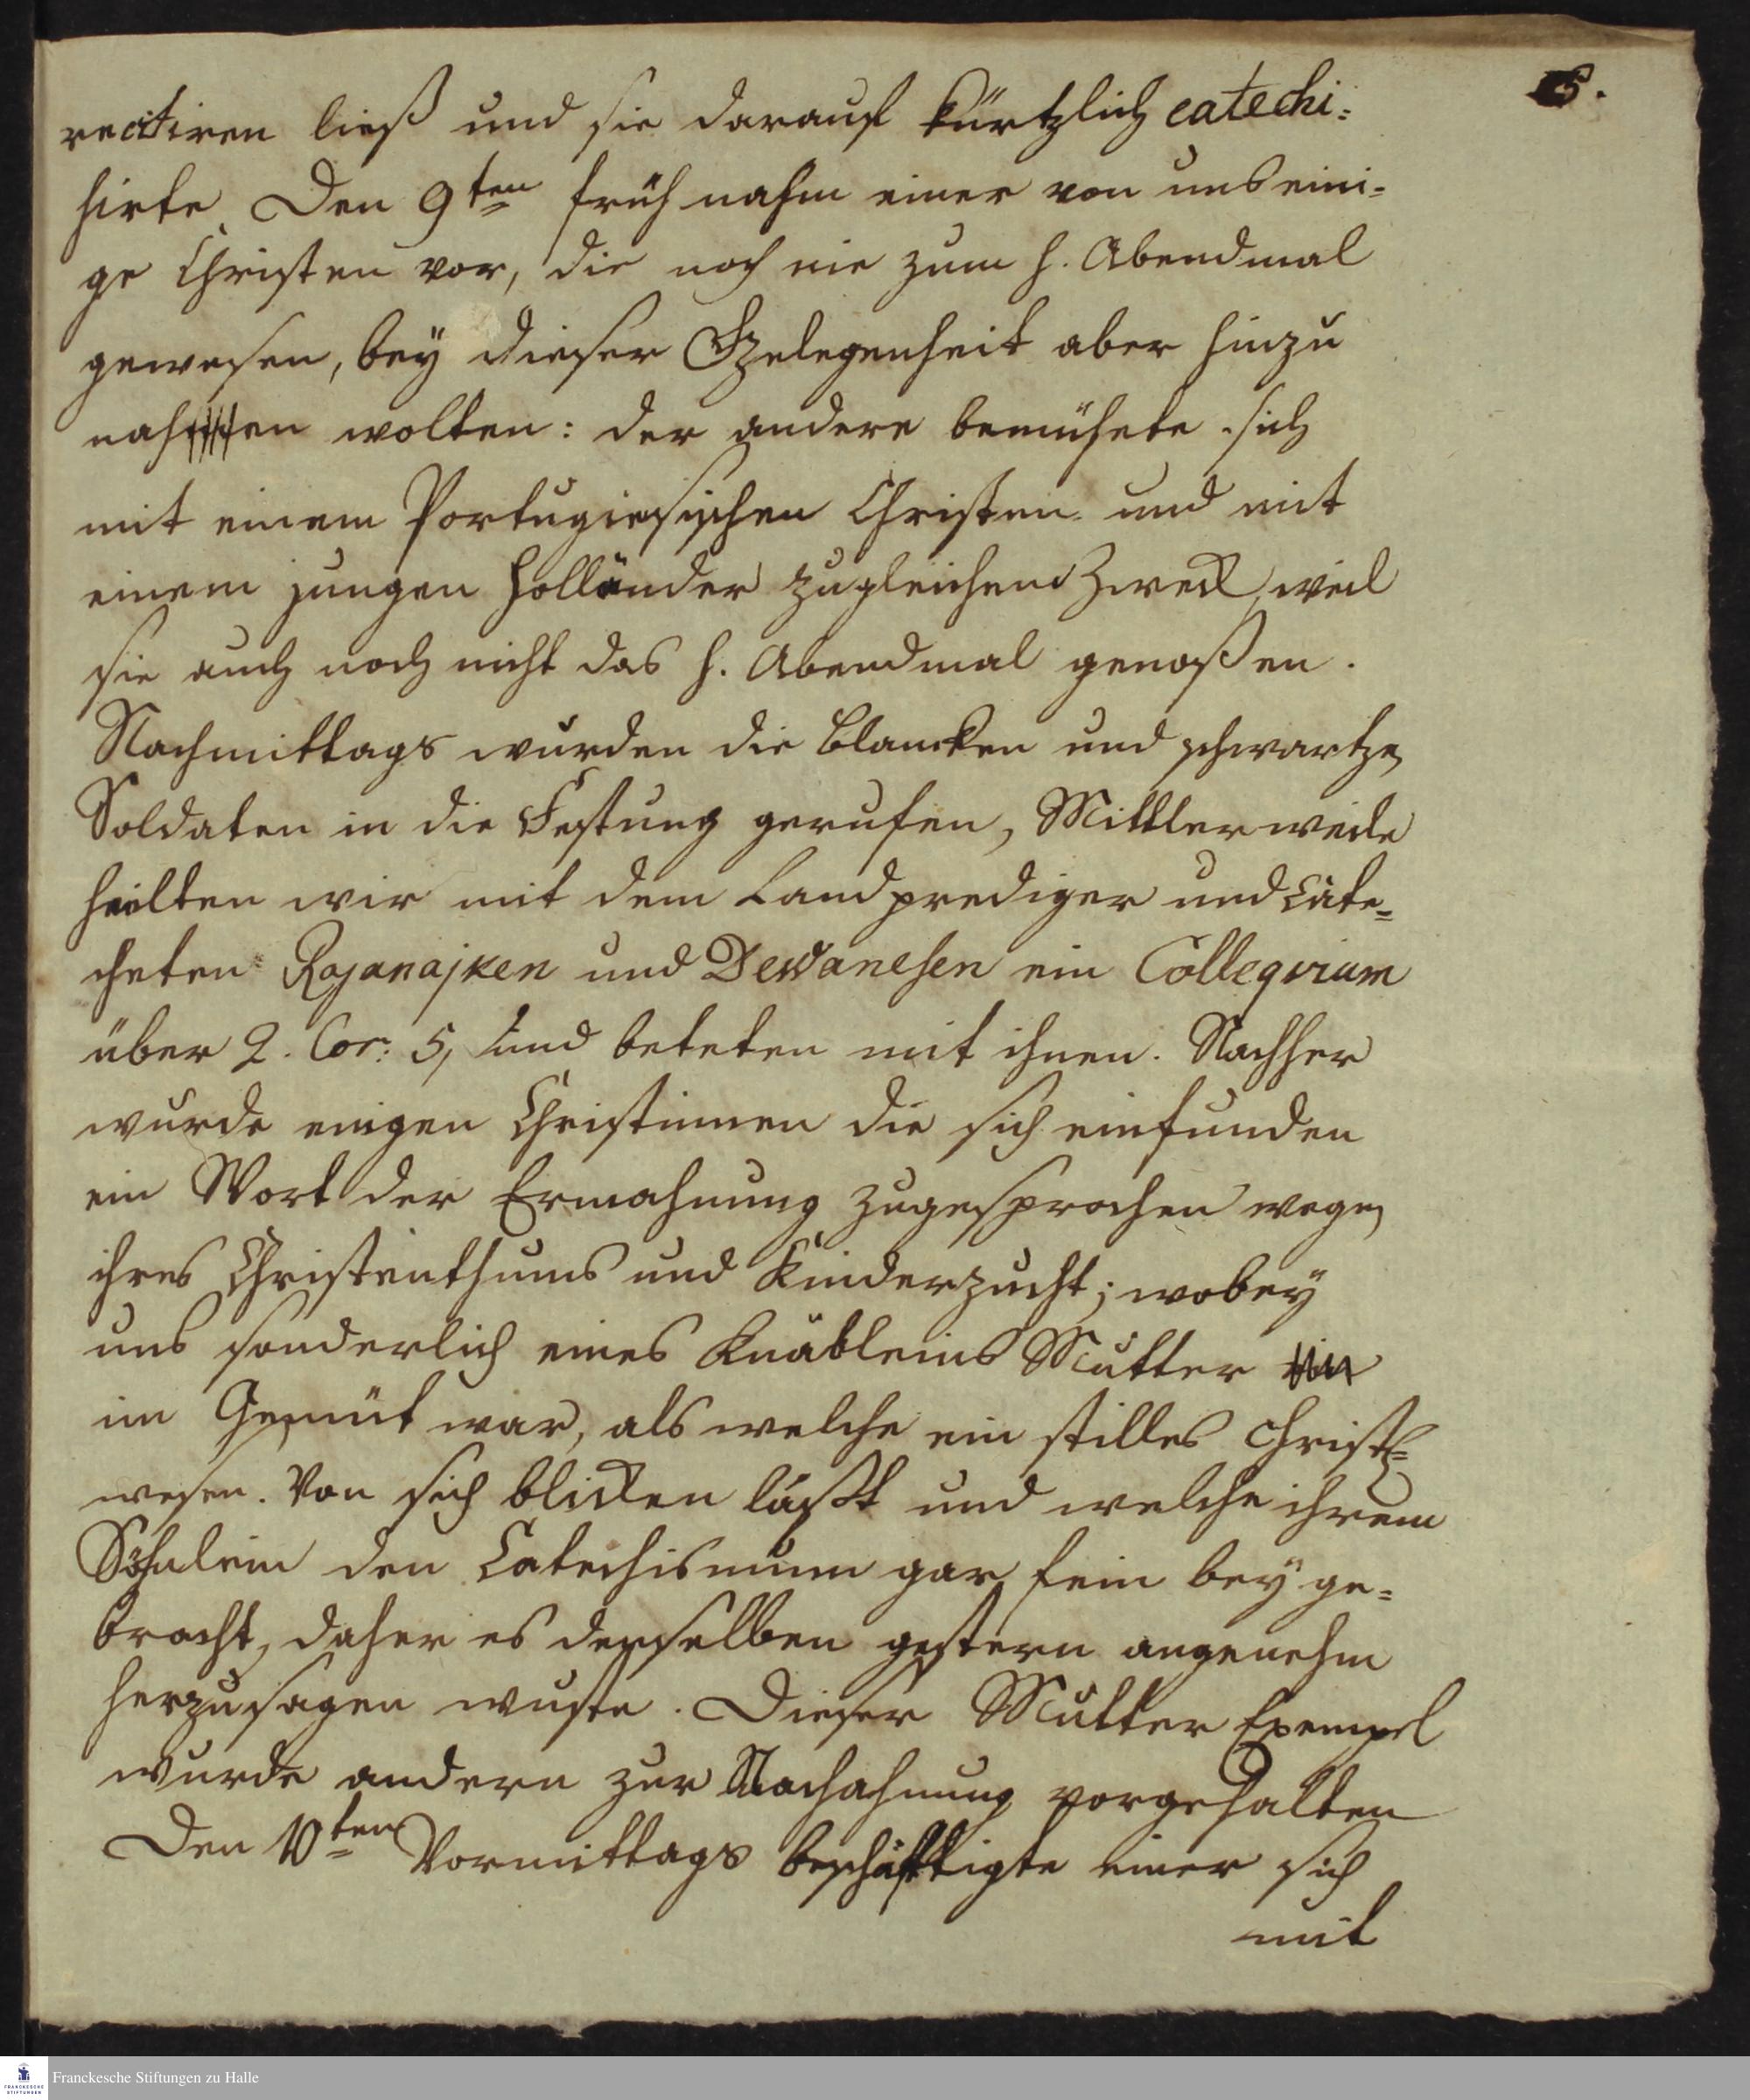 5.
recitiren ließ und sie darauf kürtzlich catechi-
sirte. Den 9ten früh nahm einer von uns eini-
ge Christen vor, die noch nie zum h. Abendmal
gewesen, bey dieser Gelegenheit aber hinzu
nahen wolten: der andere bemühete sich
mit einem Portugiesischen Christen und mit
einem jungen Holländer zu gleichem Zweck, weil
sie auch noch nicht das h. Abendmal genoßen.
Nachmittags wurden die blancken und schwartzen
Soldaten in die Festung gerufen, Mittlerweile
hielten wir mit dem Landprediger und Cate-
cheten Rajanajken und Dewanesen ein Collegvium
über 2. Cor: 5, und beteten mit ihnen. Nachher
wurde einigen Christinnen die sich einfunden
ein Wort der Ermahnung zugesprochen wegen
ihres Christenthums und Kinderzucht; wobey
uns sonderlich eines Knäbleins Mutter
im Gemüt war, als welche ein stilles Christl-
wesen. Von sich blicken läßt und welche ihrem
Söhnlein den Catechismum gar fein beyge-
bracht, daher es denselben gestern angenehm
herzusagen wuste. Dieser Mutter Exempel
wurde andern zur Nachahmung vorgehalten
Den 10ten Vormittags beschäftigte einer sich
mit
Franckesche Stiftungen zu Halle
FRANCKESCHE
STIFTUNGEN